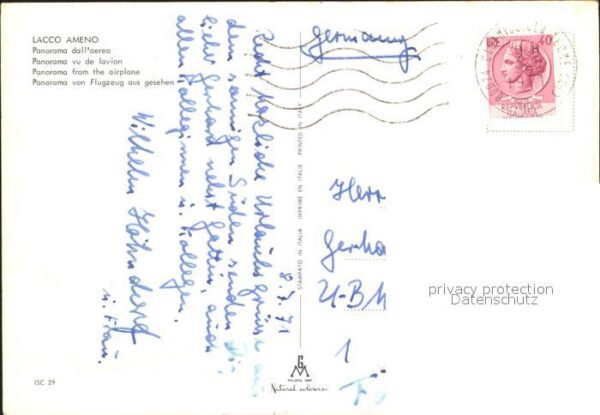 LACCO AMENO
Panorama dall'aereo
Panorama vu de l'avion
Panorama from the airplane
Panorama von Flugzeug aus gesehen
8.7.71
Recht herzliche Urlaubsgrüsse aus
dem sonnigen Süden senden Dir,
lieber Gerhard nebst Gattin, auch
allen Kolleginnen u. Kollegen,
Wilhelm
u. Frau.
Germany
40
REPVBBLICA
ITALIANA
STAMPATO IN ITALIA IMPRIMÉ EN ITALIE PRINTED IN ITALY
Herr
Gerha
U-BM
1
privacy protection
Datenschutz
Natural colours
ISC 29